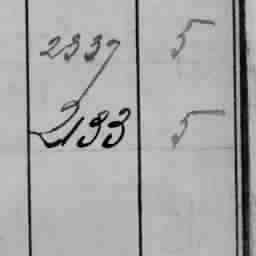 2337 5
2133 5